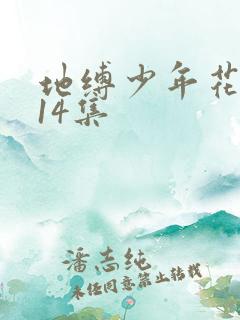 地缚少年花
14集
潘志纯
未经同意禁止转载